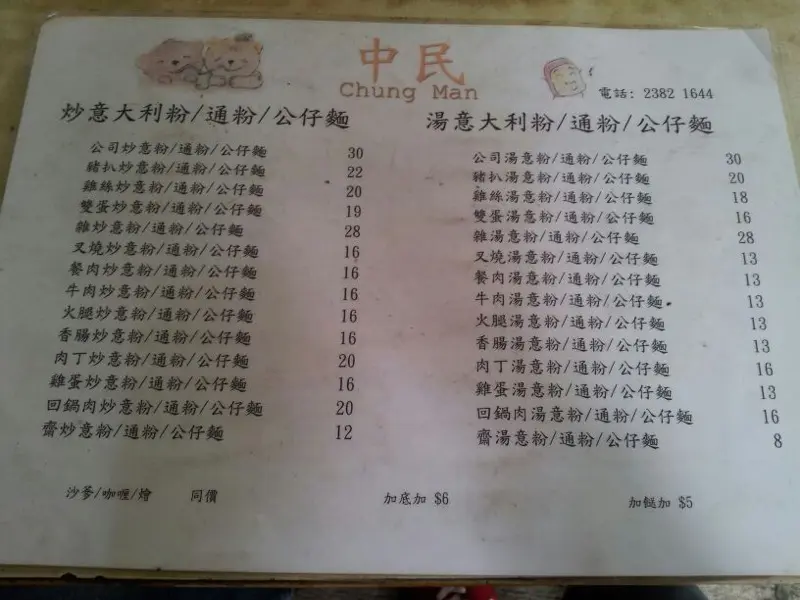 中民
Chung Man
電話: 2382 1644
炒意大利粉/通粉/公仔麵
公司炒意粉/通粉/公仔麵 30
豬扒炒意粉/通粉/公仔麵 22
雞絲炒意粉/通粉/公仔麵 20
雙蛋炒意粉/通粉/公仔麵 19
雜炒意粉/通粉/公仔麵 28
叉燒炒意粉/通粉/公仔麵 16
餐肉炒意粉/通粉/公仔麵 16
牛肉炒意粉/通粉/公仔麵 16
火腿炒意粉/通粉/公仔麵 16
香腸炒意粉/通粉/公仔麵 16
肉丁炒意粉/通粉/公仔麵 20
雞蛋炒意粉/通粉/公仔麵 16
回鍋肉炒意粉/通粉/公仔麵 20
齋炒意粉/通粉/公仔麵 12
湯意大利粉/通粉/公仔麵
公司湯意粉/通粉/公仔麵 30
豬扒湯意粉/通粉/公仔麵 20
雞絲湯意粉/通粉/公仔麵 18
雙蛋湯意粉/通粉/公仔麵 16
雜湯意粉/通粉/公仔麵 28
叉燒湯意粉/通粉/公仔麵 13
餐肉湯意粉/通粉/公仔麵 13
牛肉湯意粉/通粉/公仔麵 13
火腿湯意粉/通粉/公仔麵 13
香腸湯意粉/通粉/公仔麵 13
肉丁湯意粉/通粉/公仔麵 16
雞蛋湯意粉/通粉/公仔麵 13
回鍋肉湯意粉/通粉/公仔麵 16
齋湯意粉/通粉/公仔麵 8
沙爹/咖喱/燴 同價 加底加 $6 加餸加 $5